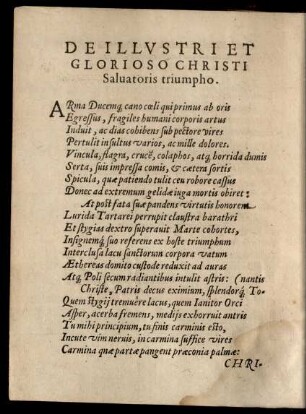 DE ILLVSTRI ET
GLORIOSO CHRISTI
Saluatoris triumpho.
ARma Ducemq; cano cœli qui primus ab oris
Egressus, fragiles humani corporis artus
Induit, ac dias cohibens sub pectore vires
Pertulit insultus varios, ac mille dolores.
Vincula, flagra, crucē, colaphos, atq; horrida dumis
Serta, suis impressa comis, & cætera fortis
Spicula, quæ patiendo tulit ceu robore cassus
Donec ad extremum gelidæ iuga mortis obiret:
At post fata suæ pandens virtutis honorem
Lurida Tartarei perrupit claustra barathri
Et stygias dextro superauit Marte cohortes,
Insignemq; suo referens ex hoste triumphum
Interclusa lacu sanctorum corpora vatum
Æthereas domito custode reduxit ad auras
Atq; Poli secum radiantibus intulit astris: (nantis
Christe, Patris decus eximium, splendorq; To-
Quem stygij tremuêre lacus, quem Ianitor Orci
Asper, acerba fremens, medijs exhorruit antris
Tu mihi principium, tu finis carminis esto,
Incute vim neruis, in carmina suffice vires
Carmina quæ partæ pangent præconia palmæ:
CHRI-